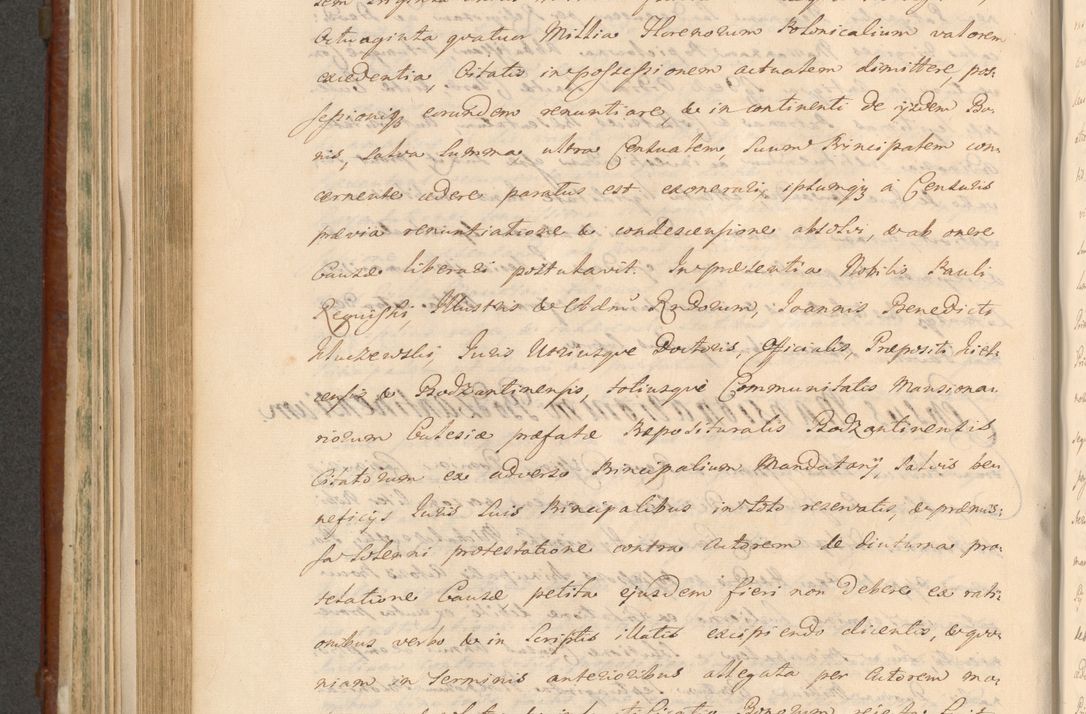 Octuaginta quatuor Millia Florenorum Polonicalium valorem
excedentia, Citatis in possessionem actualem dimittere, pos:
sessioniq3 eorundem renuntiare, & in continenti de ijsdem Bo:
nis, salva Summa ultra Censualem, Suum Principalem con:
cernente cedere paratus est exonerari, ipsumq3 à Censuris
prævia renuntiatione & condescensione absolvi, & ab onere
Causæ liberari postulavit. In præsentia Nobilis Pauli
Illustris & Adm Rndorum, Joannis Benedicti
Kluczewski Juris Utriusque Doctoris, Officialis, Præpositi Kiel:
censis & Bodzantinensis, totiusque Communitatis Mansiona:
riorum Ecclesiæ præfatæ Præposituralis Bodzantinensis
Citatorum ex adverso Principalium Mandatarij, Salvis be:
neficijs Juris Suis Principalibus in toto reservatis, & præmis:
sa Solenni protestatione contra Actorem de diuturna pro:
telatione Causæ petita ejusdem fieri non debere ex rati:
onibus verbo & in Scriptis illatis excipiendo dicentis, & quo:
niam in Terminis anterioribus allegata per Actorem